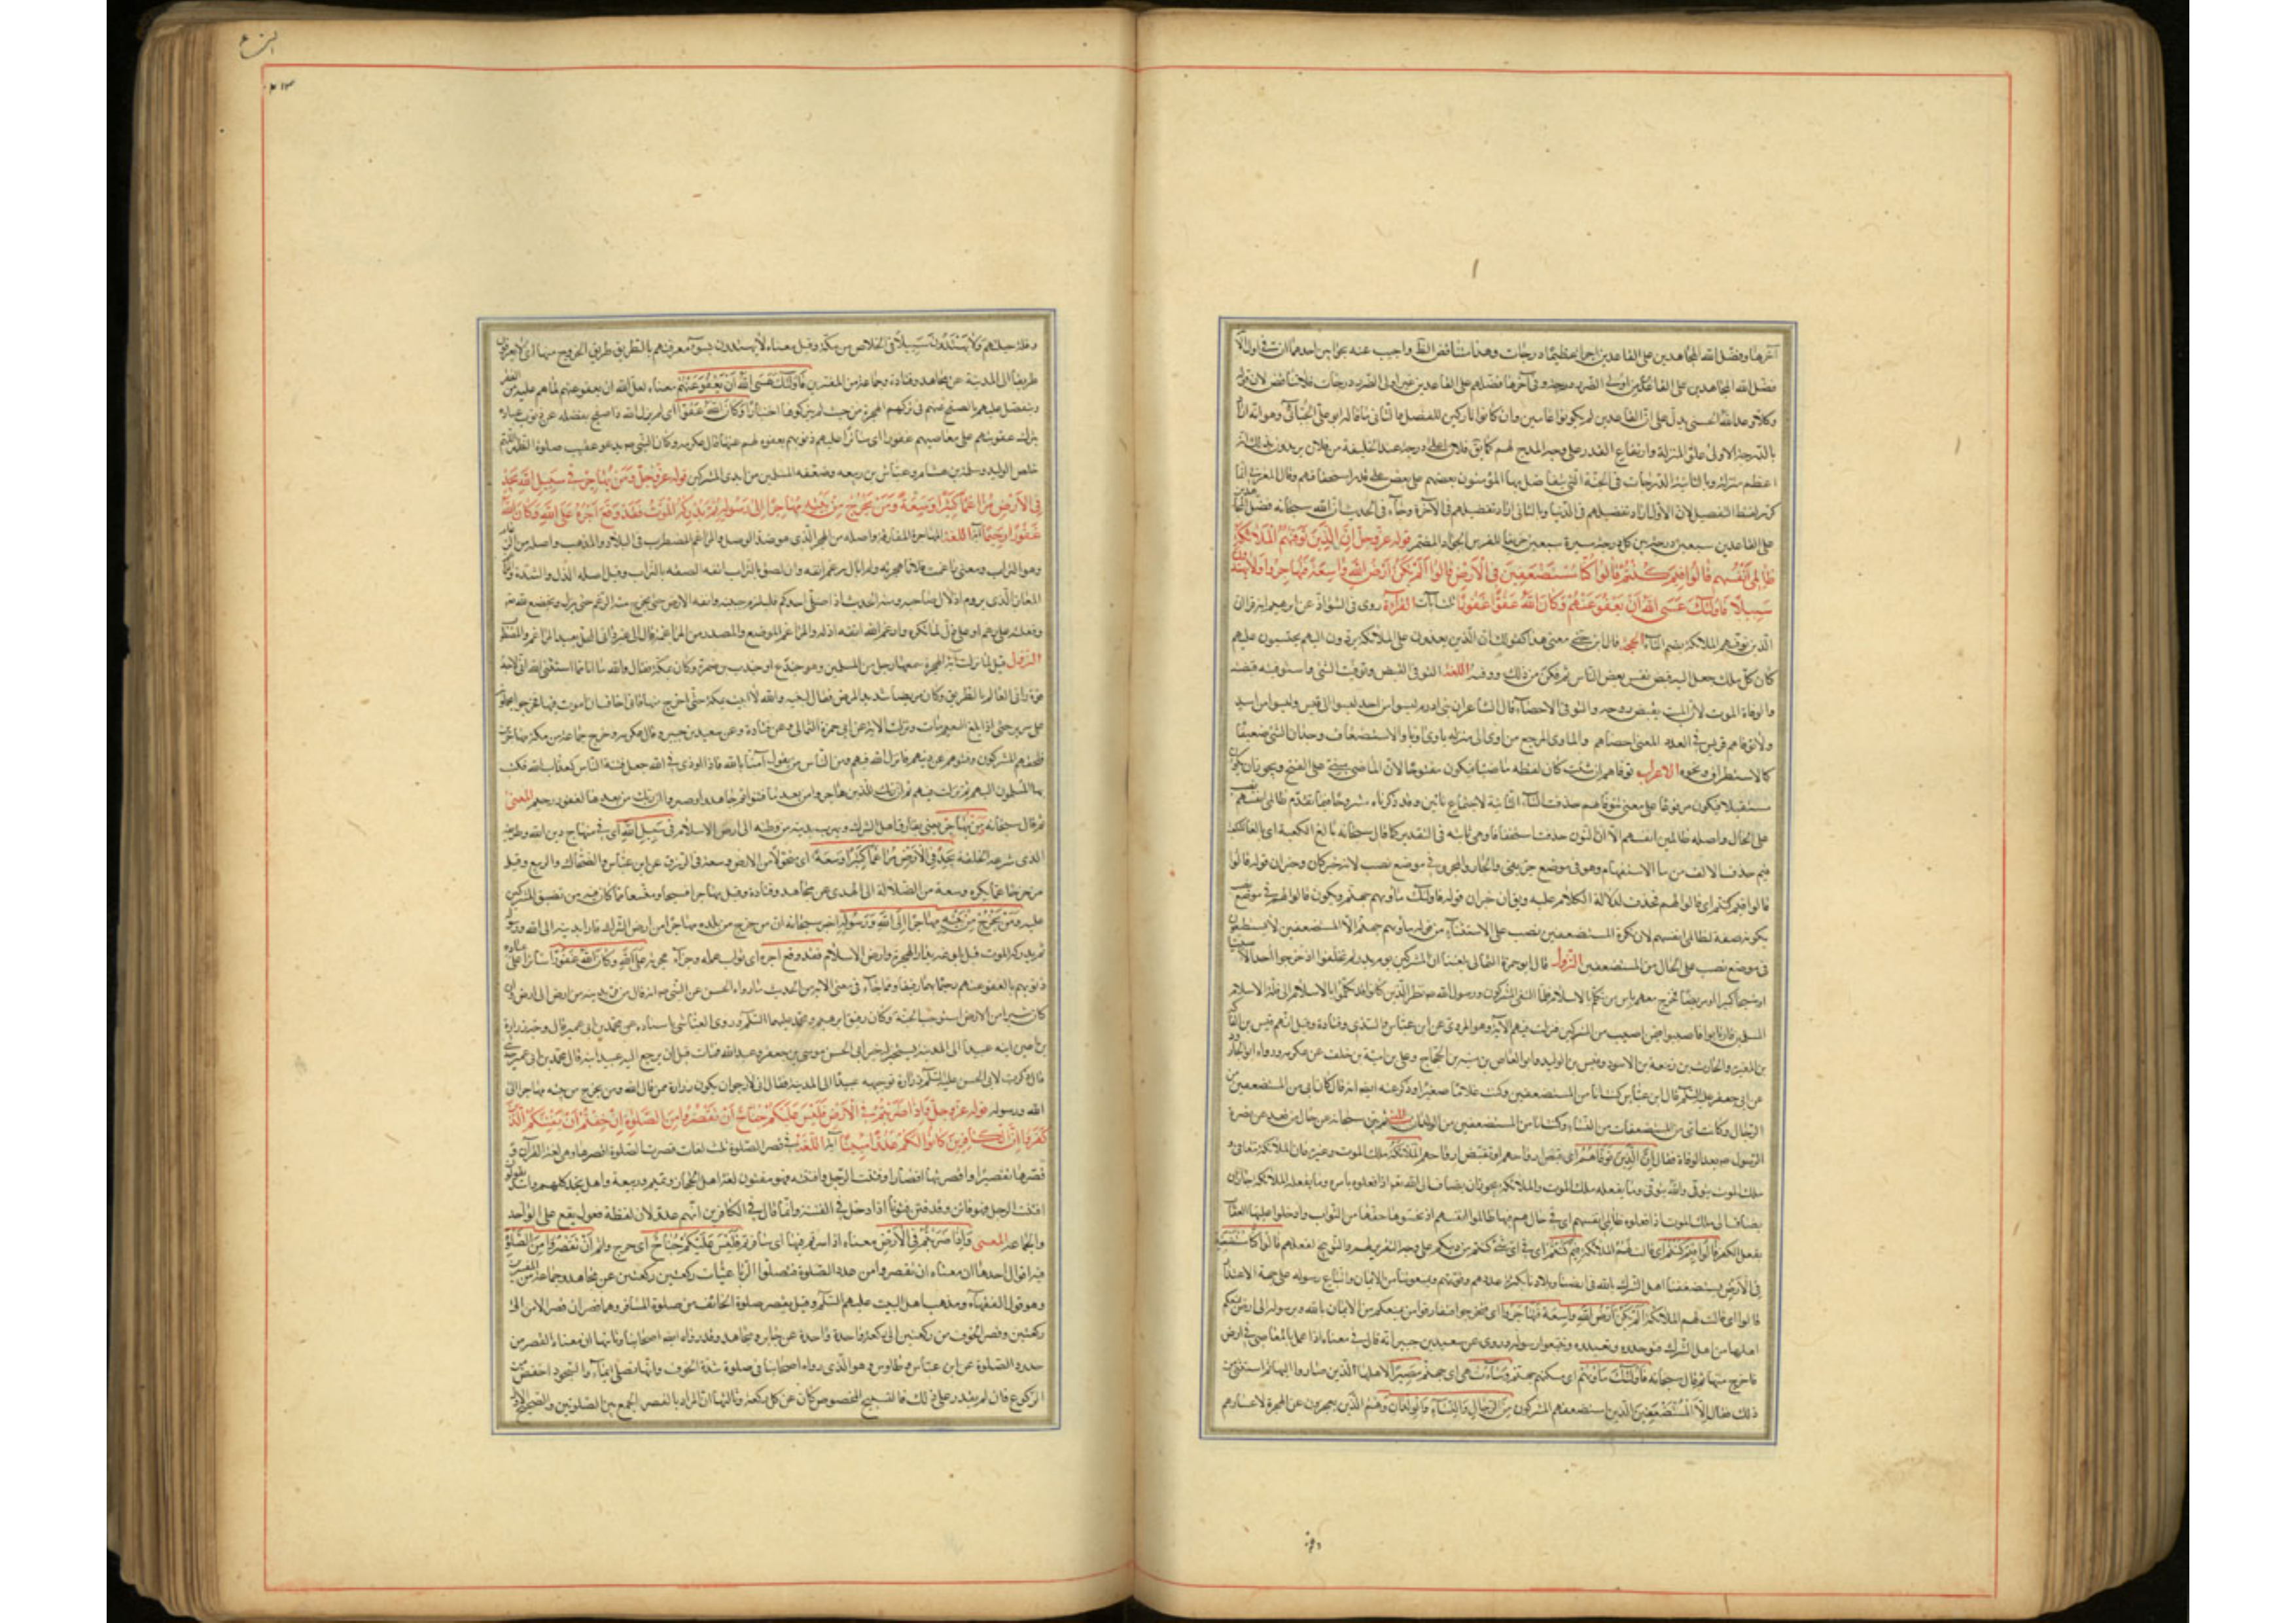 آخرها وفضّل الله المجاهدين على القاعدين اجرا عظيما درجات وهذا متناقض الظ واجيب عنه بجوابين احدهما ان في اول الآ
فضّل الله المجاهدين على القاعدين اولى الضرر درجة وفى آخرها فضّلهم على القاعدين غير اولى الضرر درجات فلا تناقض لان قوله
وكلا وعد الله الحسنى يدل على ان القاعدين لم يكونوا عاصين وان كانوا تاركين للفضل والثانى ما قاله ابو على الجبائى وهو انه اراد
بالدرجة الاولى علو المنزلة وارتفاع القدر على وجه المدح لهم كما يق فلان اعلى درجة عند الخليفة من فلان يريدون بذلك انه
اعظم منزلة وبالثانية الدرجات فى الجنة التى يتفاضل بها المؤمنون بعضهم على بعض على قدر استحقاقهم وقال المغربى انما
كرر لفظ التفضيل لان الاول اراد تفضيلهم فى الدنيا وبالثانى اراد تفضيلهم فى الآخرة وجاء فى الحديث ان الله سبحانه فضل المجاهدين
على القاعدين سبعين درجة بين كل درجتين مسيرة سبعين خريفا للفرس الجواد المضمر قوله عز وجل ان الذين توفيهم الملائكة
ظالمى انفسهم قالوا فيم كنتم قالوا كنا مستضعفين فى الارض قالوا الم تكن ارض الله واسعة فتهاجروا
سبيلا فاولئك عسى الله ان يعفو عنهم وكان الله عفوا غفورا ثلث آيات القراءة روى فى الشواذ عن ابرهيم انه قرا ان
الذين توفيهم الملائكة بضم التاء الحجة قال ابن جنى معنى هذا كقولك ان الذين يعدون على الملائكة يردون اليهم يحتسبون عليهم
كان كل ملك جعل اليه قبض نفس بعض الناس ثم مكن من ذلك ووفيه اللغة التوفى القبض وتوفيت الشئ واستوفيته قبضته
والوفاة الموت لان الميت يقبض روحه والتوفى الاحصاء قال الشاعر ان بنى ادرم ليسوا من احد ليسوا الى قيس وليسوا من اسد
ولا توفاهم قريش فى العدد المعنى احصاهم والماوى المرجع من اوى الى منزله ياوى اويا والاستضعاف وجدان الشئ ضعيفا
كالاستطراف ونحوه الاعراب توفاهم ان شئت كان لفظه ماضيا فيكون مفتوحا لان الماضى مبنى على الفتح ويجوز ان يكون
مستقبلا فيكون مرفوعا على معنى تتوفاهم حذفت التاء الثانية لاجتماع تائين وقد ذكرناه مشروحا فيما تقدم ظالمى انفسهم نصب
على الحال واصله ظالمين انفسهم الا ان النون حذفت استخفافا وهى ثابتة فى التقدير كما قال سبحانه بالغ الكعبة اى بالغا الكعبة
فيم حذفت الالف من ما الاستفهام وهو فى موضع جر بفى والجار والمجرور فى موضع نصب لانه خبر كان وخبر ان قوله قالوا
قالوا فيم كنتم اى قالوا لهم فحذف لدلالة الكلام عليه ويق ان خبر ان قوله فاولئك ماويهم جهنم ويكون قالوا لهم فى موضع نصب
بكونه صفة لظالمى انفسهم لانه نكرة المستضعفين نصب على الاستثناء من قوله ماويهم جهنم الا المستضعفين لا يستطيعون
فى موضع نصب على الحال من المستضعفين النزول قال ابو حمزة الثمالى بلغنا ان المشركين يوم بدر لم يخلفوا اذ خرجوا احدا الا صبيا
او شيخا كبيرا او مريضا فخرج معهم ناس ممن تكلم بالاسلام فلما التقى المشركون ورسول الله ص نظر الذين كانوا قد تكلموا بالاسلام الى قلة الاسلام
المسلمين فارتابوا فاصيبوا فيمن اصيب من المشركين فنزلت فيهم الآية وهو المروى عن ابن عباس والسدى وقتادة وقيل انهم قيس بن الفاكه
بن المغيرة والحارث بن زمعة بن الاسود وقيس بن الوليد وابو العاص بن منبه بن الحجاج وعلى بن امية بن خلف عن عكرمه ورواه ابو الجارود
عن ابى جعفر عليه السلم قال ابن عباس كنت انا من المستضعفين وكنت غلاما صغيرا وذكر عنه ايضا انه قال كان ابى من المستضعفين من
الرجال وكانت امى من المستضعفات من النساء وكنت انا من المستضعفين من الولدان المعنى ثم بين سبحانه عن حال من قعد عن نصرة
الرسول ص بعد الوفاة فقال ان الذين توفاهم اى قبض ارواحهم او تقبض ارواحهم الملائكة ملك الموت وغيره فان الملائكة تتوفى و
ملك الموت يتوفى والله يتوفى وما يفعله ملك الموت والملائكة يجوز ان يضاف الى الله تع اذا فعلوه بامره وما يفعله الملائكة جاز ان
يضاف الى ملك الموت اذا فعلوه ظالمى انفسهم اى فى حال هم فيها ظالموا انفسهم اذ بخسوها حقها من الثواب وادخلوا عليها العقاب
بفعل الكفر قالوا فيم كنتم اى قالت لهم الملائكة فيم كنتم اى فى اى شئ كنتم من دينكم على وجه التقرير لهم والتوبيخ لفعلهم قالوا كنا مستضعفين
فى الارض يستضعفنا اهل الشرك بالله فى ارضنا وبلادنا بكثرة عددهم وقوتهم ويمنعوننا من الايمان واتباع رسوله على جهة الاعتذار
قالوا اى قالت لهم الملائكة الم تكن ارض الله واسعة فتهاجروا فيها اى فتخرجوا من ارضكم وتفارقوا من يمنعكم من الايمان بالله وبرسوله الى ارض يمنعكم
اهلها من اهل الشرك فتوحدوه وتعبدوه وتتبعوا رسوله وروى عن سعيد بن جبير انه قال فى معناه اذا عمل بالمعاصى فى ارض
فاخرج منها ثم قال سبحانه فاولئك ماويهم اى مسكنهم جهنم وساءت هى اى جهنم مصيرا لاهلها الذين صاروا اليها ثم استثنى من
ذلك فقال الا المستضعفين الذين استضعفهم المشركون من الرجال والنساء والولدان وهم الذين يعجزون عن الهجرة لاعسارهم
وقلة
النساء
وقلة حيلتهم ولا يهتدون سبيلا فى الخلاص من مكة وقيل معناه لا يهتدون بسوء معرفتهم بالطريق طريق الخروج منها اى لا يعرفون
طريقا الى المدينة عن مجاهد وقتادة وجماعة من المفسرين فاولئك عسى الله ان يعفو عنهم معناه لعل الله ان يعفو عنهم لما هم عليه من الفقر
ويتفضل عليهم بالصفح عنهم فى تركهم الهجرة من حيث لم يتركوها اختيارا وكان الله عفوا اى لم يزل الله ذا صفح بفضله عن ذنوب عباده
بترك عقوبتهم على معاصيهم غفورا اى ساترا عليهم ذنوبهم بعفوه لهم عنها قال عكرمه وكان النبى ص يدعو عقيب صلوة الظهر اللهم
خلص الوليد وسلمة بن هشام وعياش بن ربيعه وضعفه المسلمين من ايدى المشركين قوله عز وجل ومن يهاجر فى سبيل الله يجد
فى الارض مراغما كثيرا وسعة ومن يخرج من بيته مهاجرا الى الله ورسوله ثم يدركه الموت فقد وقع اجره على الله وكان الله
غفورا رحيما آية اللغة المهاجرة المفارقة واصله من الهجر الذى هو ضد الوصل والمراغم المضطرب فى البلاد والمذهب واصله من الرغام
وهو التراب ومعنى راغمت فلانا هجرته ولم ابال رغم انفه وان لصق بالتراب انفه الصقه بالتراب وقيل اصله الذل والشدة والمراغم
المعان الذى يروم اذلال صاحبه ومنه الحديث اذا صلى احدكم فليلزم جبهته وانفه الارض حتى يخرج منه الرغم حتى يذل ويخضع لله تع
وفعلته على رغم او على ذل بما تكره وارغم الله انفه اذله والمراغم الموضع والمصدر من المراغمة قال الى بلد غير دانى المحل بعيد المراغم والمضطرب
النزول قيل لما نزلت آية الهجرة سمعها رجل من المسلمين وهو جندع او جندب بن ضمرة وكان بمكة فقال والله ما انا مما استثنى الله انى لاجد
قوة وانى لعالم بالطريق وكان مريضا شديد المرض فقال لبنيه والله لا ابيت بمكة حتى اخرج منها فانى اخاف ان اموت فيها فخرجوا يحملونه
على سرير حتى اذا بلغ التنعيم مات ونزلت الاية عن ابى حمزة الثمالى وعن قتادة وعن سعيد بن جبير وقال عكرمه وخرج جماعة من مكة مهاجرين
فلحقهم المشركون وفتنوهم عن دينهم فانزل الله فيهم ومن الناس من يقول آمنا بالله فاذا اوذى فى الله جعل فتنة الناس كعذاب الله فكتب
بها المسلمون اليهم ثم نزلت فيهم ثم ان ربك للذين هاجروا من بعد ما فتنوا ثم جاهدوا وصبروا ان ربك من بعدها لغفور رحيم المعنى
ثم قال سبحانه ومن يهاجر يعنى يفارق اهل الشرك ويهرب بدينه من وطنه الى ارض الاسلام فى سبيل الله اى فى منهاج دين الله وطريقه
الذى شرعه لخلقه يجد فى الارض مراغما كثيرا وسعة اى متحولا من الارض وسعة فى الرزق عن ابن عباس والضحاك والربيع وقيل
مزحزحا عما يكره وسعة من الضلالة الى الهدى عن مجاهد وقتادة وقيل مهاجرا فسيحا ومتسعا مما كان فيه من تضيق المشركين
عليه ومن يخرج من بيته مهاجرا الى الله ورسوله اخبر سبحانه ان من خرج من بلده مهاجرا من ارض الشرك فارا بدينه الى الله ورسوله
ثم يدركه الموت قبل بلوغه دار الهجرة وارض الاسلام فقد وقع اجره اى ثواب عمله وجزاء هجرته على الله وكان الله غفورا ساترا على عباده
ذنوبهم بالعفو عنهم رحيما بهم رفيقا ومما جاء فى معنى الاية من الحديث ما رواه الحسن عن النبى ص انه قال من فر بدينه من ارض الى ارض وان
كان شبرا من الارض استوجب الجنة وكان رفيق ابرهيم ومحمد عليهما السلم وروى العياشى باسناده عن محمد بن ابى عمير قال وجه زرارة
بن اعين ابنه عبيدا الى المدينة ليستخبر له خبر ابى الحسن موسى بن جعفر وعبد الله فمات قبل ان يرجع اليه عبيد ابنه قال محمد بن ابى عمير
قال ذكرت لابى الحسن عليه السلم زرارة توجيهه عبيدا الى المدينة فقال انى لارجو ان يكون زرارة ممن قال الله ومن يخرج من بيته مهاجرا الى
الله ورسوله قوله عز وجل واذا ضربتم فى الارض فليس عليكم جناح ان تقصروا من الصلوة ان خفتم ان يفتنكم الذين
كفروا ان الكافرين كانوا لكم عدوا مبينا آية اللغة فى قصر الصلوة ثلث لغات قصرت الصلوة اقصرها وهى لغة القرآن و
قصرتها تقصيرا واقصرتها اقصارا وفتنت الرجل وافتنه فهو مفتون لغة اهل الحجاز وتميم وربيعة واهل نجد كلهم واسد يقولون
افتنت الرجل فهو فاتن وقد فتن فتونا اذا دخل فى الفتنة وانما قال فى الكافرين انهم عدو لان لفظة فعول يقع على الواحد
والجماعة المعنى واذا ضربتم فى الارض معناه اذا سرتم فيها اى سافرتم فليس عليكم جناح اى حرج واثم ان تقصروا من الصلوة
فيه اقوال احدها ان معناه ان تقصروا من عدد الصلوة فتصلوا الرباعيات ركعتين ركعتين عن مجاهد وجماعة من المفسرين
وهو قول الفقهاء ومذهب اهل البيت عليهم السلم وقيل يقصر صلوة الخائف من صلوة المسافر وهما قصران قصر الامن الى
ركعتين وقصر الخوف من ركعتين الى ركعة واحدة عن جابر ومجاهد وقد رواه ايضا اصحابنا وثانيها ان معناه القصر من
حدود الصلوة عن ابن عباس وطاوس وهو الذى رواه اصحابنا فى صلوة شدة الخوف وانها تصلى ايماء والسجود اخفض من
الركوع فان لم يقدر على ذلك فالتسبيح المخصوص كاف عن كل ركعة وثالثها ان المراد بالقصر الجمع بين الصلوتين والصحيح الاول